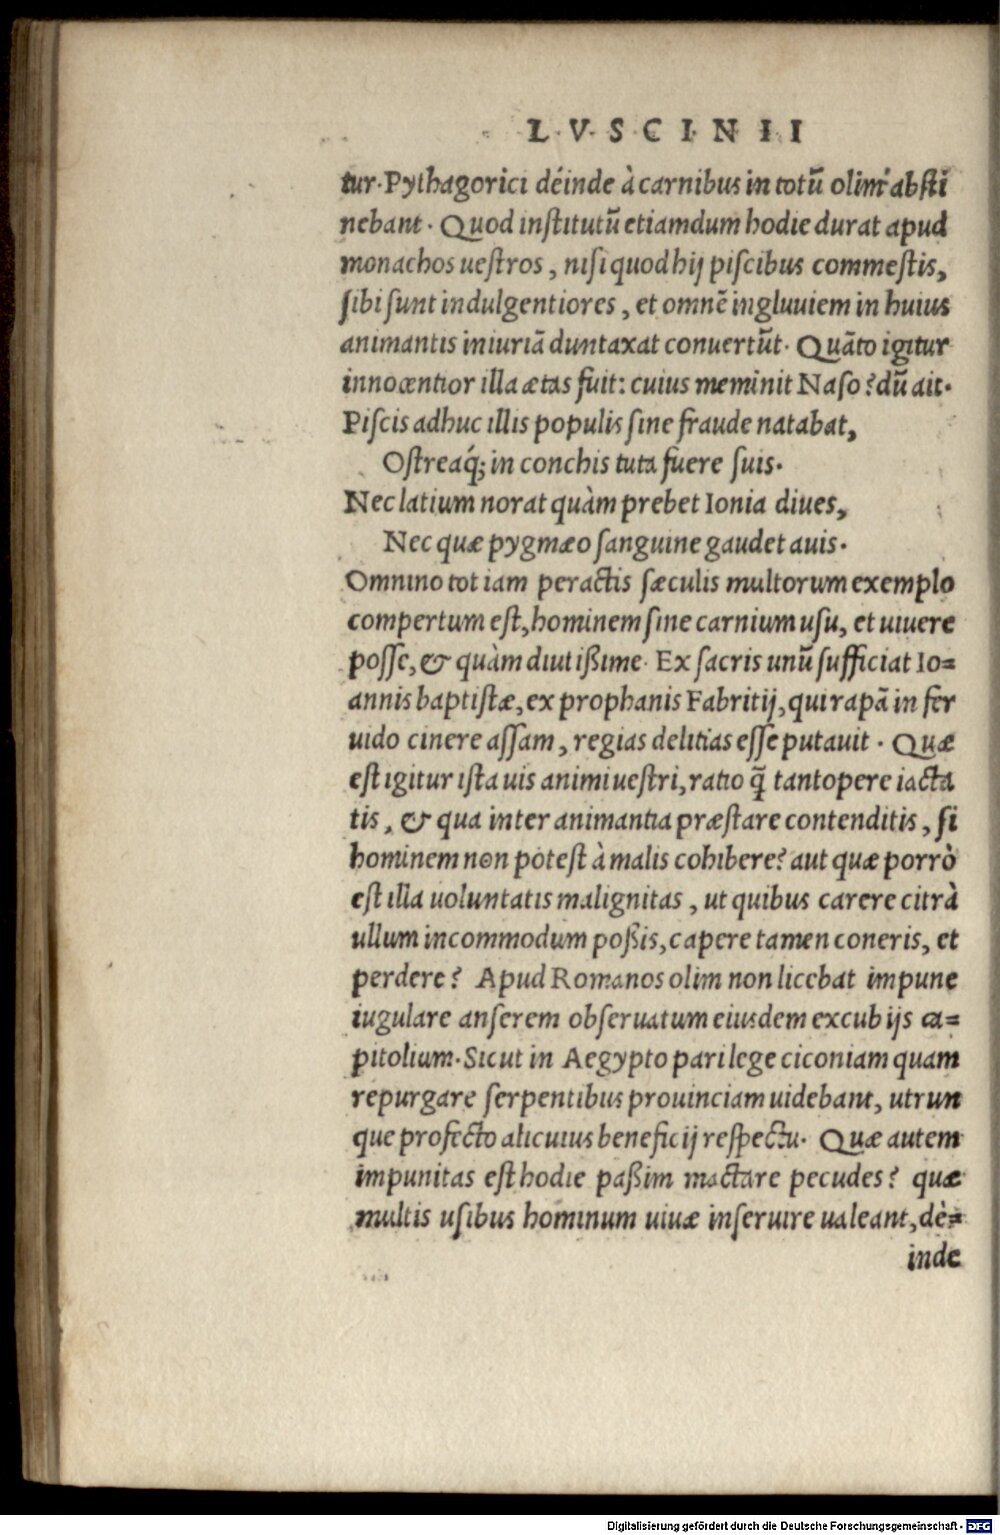 L·V·S·C·I·N·I·I
tur·Pythagorici déinde à carnibus in totũ olim abstĩ
nebant· Quod institutũ etiamdum hodie durat apud
monachos uestros, nisi quod hij piscibus commestis,
sibi sunt indulgentiores, et omnẽ ingluuiem in huius
animantis iniuriã duntaxat conuertũt· Quãto igitur
innocentior illa ætas fuit: cuius meminit Naso? dũ ait·
Piscis adhuc illis populis sine fraude natabat,
Ostreaq́; in conchis tuta fuere suis·
Nec latium norat quàm prebet Ionia diues,
Nec quæ pygmæo sanguine gaudet auis·
Omnino tot iam peractis sæculis multorum exemplo
compertum est, hominem sine carnium usu, et uiuere
posse, & quàm diutißime· Ex sacris unũ sufficiat Io=
annis baptistæ, ex prophanis Fabritij, qui rapã in fer
uido cinere assam, regias delitias esse putauit· Quæ
est igitur ista uis animi uestri, ratio q̃ tantopere iacta
tis, & qua inter animantia præstare contenditis, si
hominem non potest à malis cohibere? aut quæ porrò
est illa uoluntatis malignitas, ut quibus carere citrà
ullum incommodum poßis, capere tamen coneris, et
perdere? Apud Romanos olim non licebat impune
iugulare anserem obseruatum eiusdem excubijs ca=
pitolium· Sicut in Aegypto pari lege ciconiam quam
repurgare serpentibus prouinciam uidebant, utrun
que profecto alicuius beneficij respectu· Quæ autem
impunitas est hodie paßim mactare pecudes? quæ
multis usibus hominum uiuæ inseruire ualeant, dè=
inde
Digitalisierung gefördert durch die Deutsche Forschungsgemeinschaft - DFG